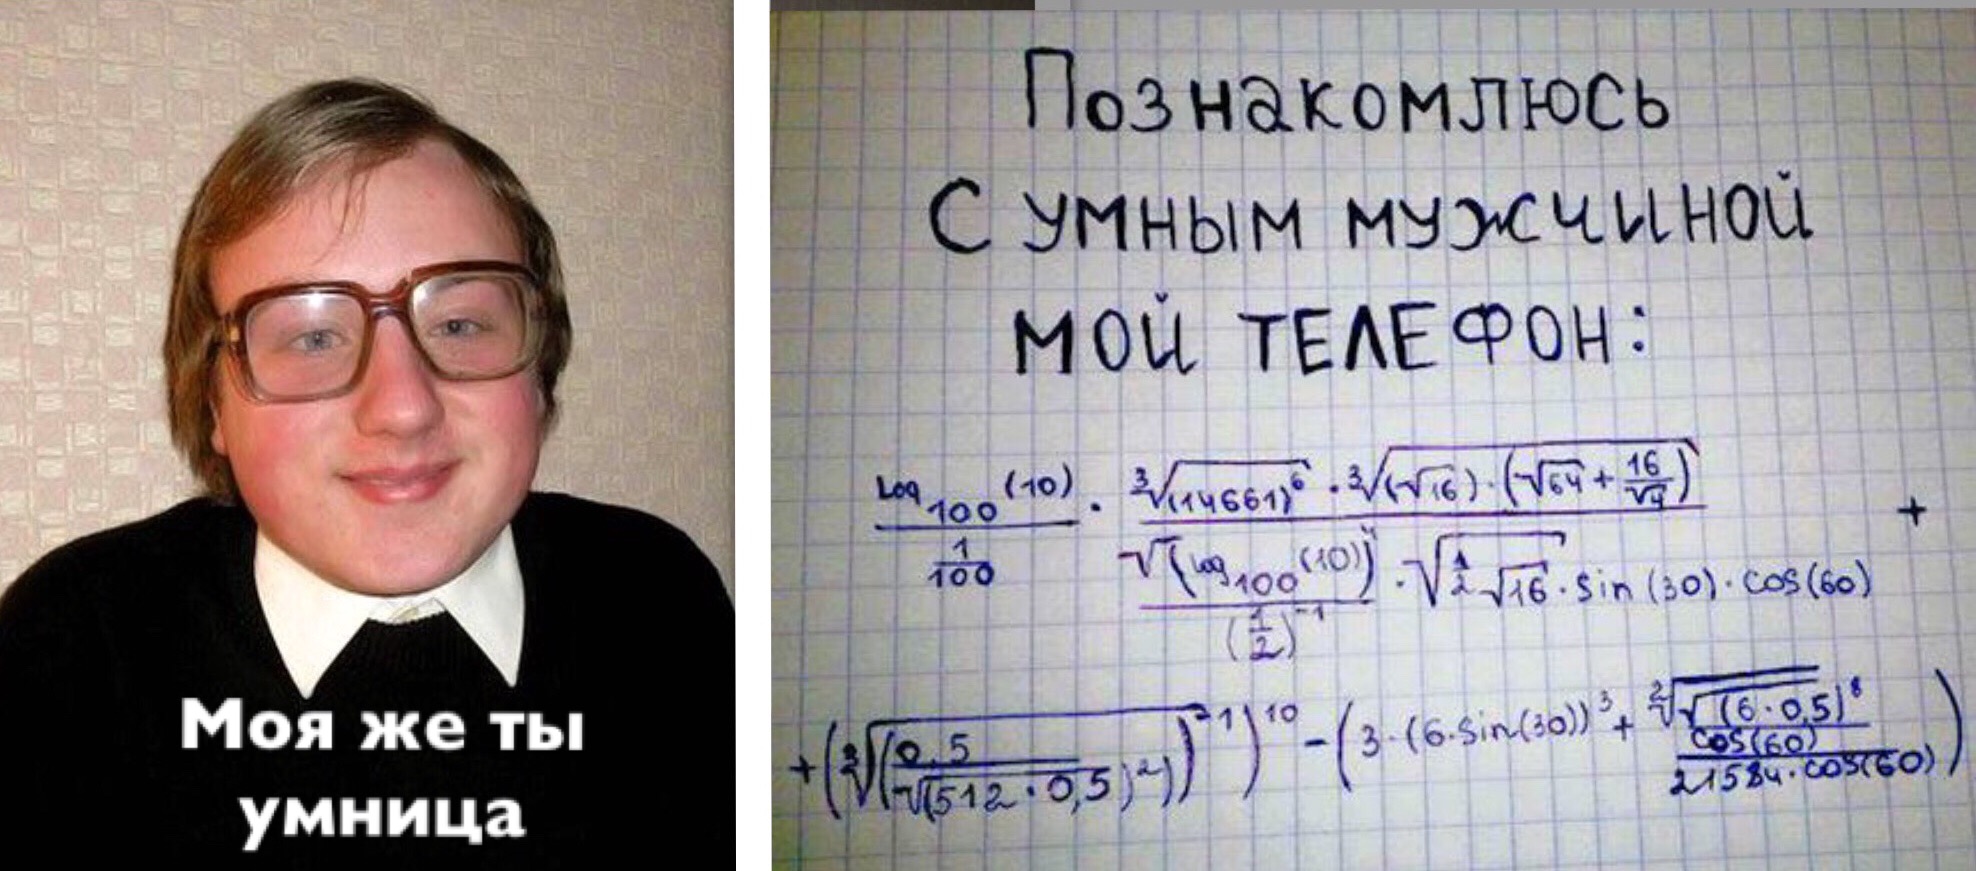 Моя же ты
умница
Познакомлюсь
С умным мужчиной
мой ТЕЛЕФОН:
Log₁₀₀(10) / (1/100) · (∛(14661)⁶ · ∛((√16)·(√64 + 16/√4))) / (√(log₁₀₀(10)) / (1/2)⁻¹ · √(1/2 √16) · sin(30) · cos(60)) +
+ (∛((0,5 / √(512·0,5)²))⁻¹)¹⁰ − (3·(6·sin(30))³ + ²√√(6·0,5)⁸ / cos(60) / 21584·cos(60))